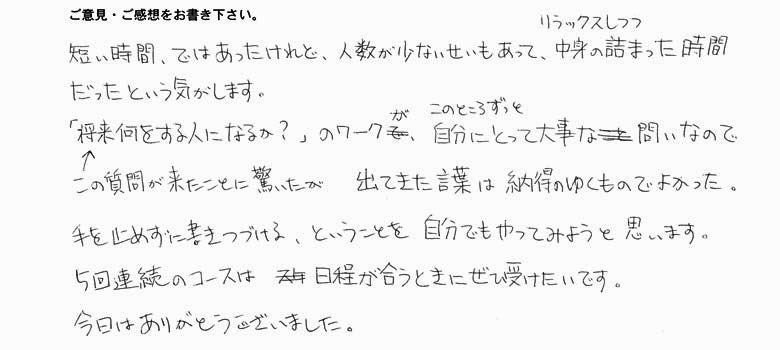 ご意見・ご感想をお書き下さい。
リラックスしつつ
短い時間、ではあったけれど、人数が少ないせいもあって、中身の詰まった時間
だったという気がします。
が このところずっと
「将来何をする人になるか？」のワーク、自分にとって大事な問いなので
↑
この質問が来たことに驚いたが 出てきた言葉は納得のゆくものでよかった。
手を止めずに書きつづける、ということを自分でもやってみようと思います。
5回連続のコースは 日程が合うときにぜひ受けたいです。
今日はありがとうございました。